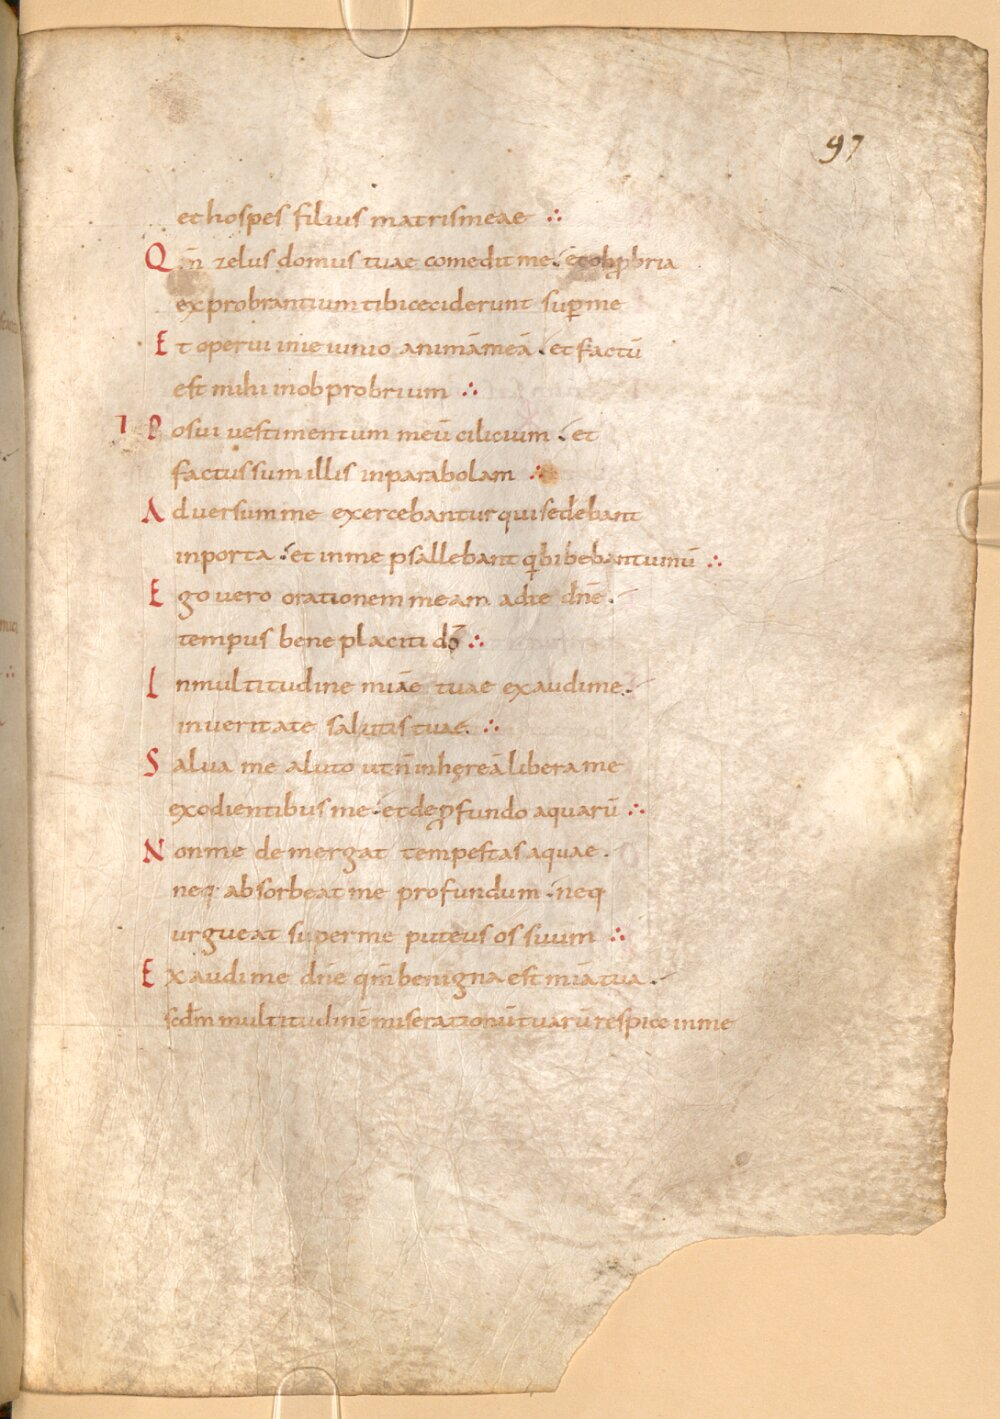 97
et hospes filius matris meae ∴
Qm̄ zelus domus tuae comedit me. et obp̄bria
exprobrantium tibi ceciderunt sup̄ me
Et operui in ieiunio animā meā. et factū
est mihi in obprobrium ∴
7 Posui vestimentum meū cilicium. et
factus sum illis in parabolam ∴
Adversum me exercebantur qui sedebant
in porta. et in me psallebant q̇ bibebant vinū ∴
Ego vero orationem meam ad te dn̄e.
tempus bene placiti dō ∴
In multitudine miāe tuae exaudi me.
in veritate salutis tuae ∴
Salva me a luto ut n̄ inhęreā libera me
ex odientibus me. et de p̄fundo aquarū ∴
Non me demergat tempestas aquae.
neq· absorbeat me profundum. neq
urgueat super me puteus os suum ∴
Exaudi me dn̄e qm̄ benigna est miā tua.
scdm̄ multitudinē miserationū tuarū respice in me